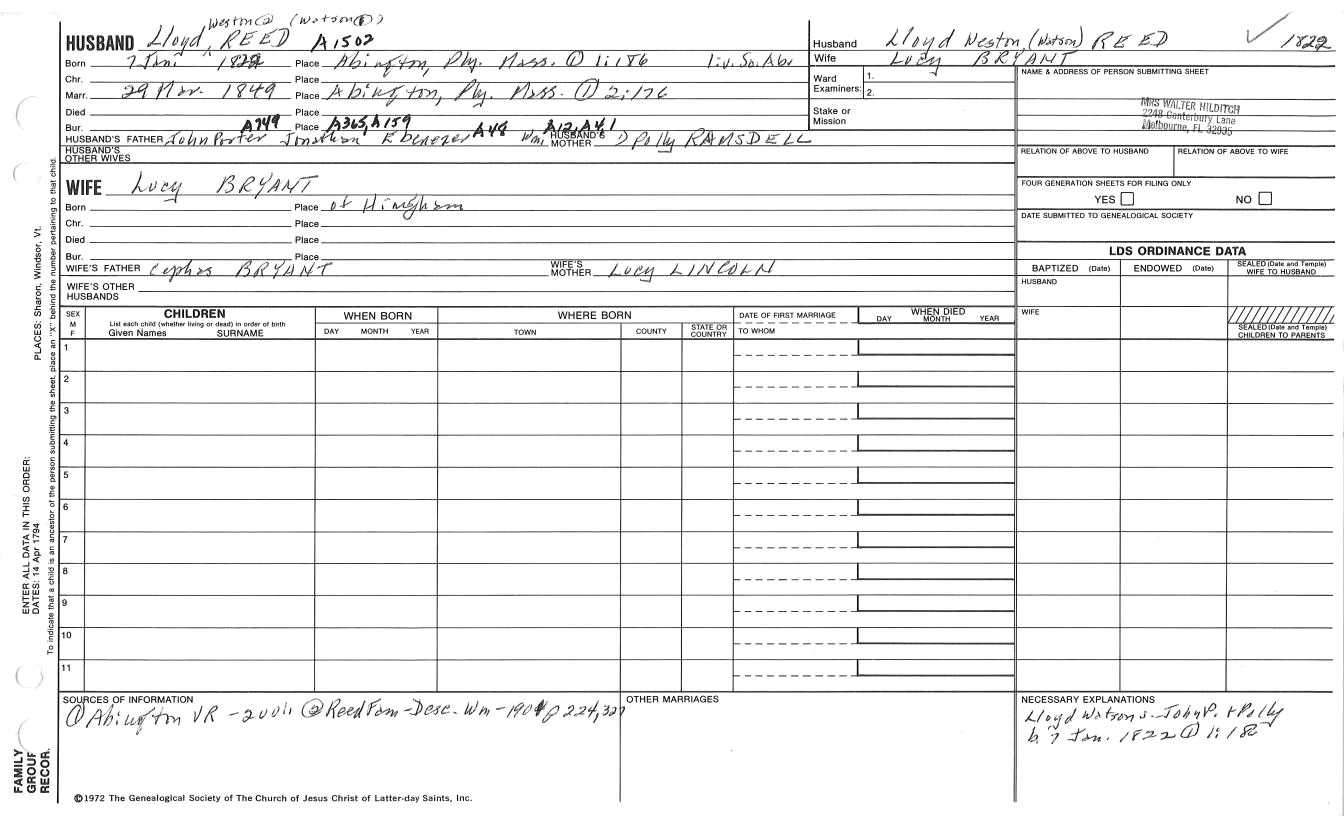 Weston② (Watson①)
HUSBAND Lloyd ^ REED A1502
Born 7 Jan. 1822 Place Abington, Ply. Mass. ① 1:186 liv. So. Abi
Chr. Place
Marr. 29 Nov. 1849 Place Abington, Ply. Mass. ① 2:176
Died Place
Bur. A749 Place A365, A159 A48 A12, A41
HUSBAND'S FATHER John Porter Jonathan Ebenezer Wm. HUSBAND'S MOTHER Polly RAMSDELL
HUSBAND'S OTHER WIVES
WIFE Lucy BRYANT
Born Place of Hingham
Chr. Place
Died Place
Bur. Place
WIFE'S FATHER Cephas BRYANT WIFE'S MOTHER Lucy LINCOLN
WIFE'S OTHER HUSBANDS
Husband Lloyd Weston (Watson) REED ✓ 1822
Wife Lucy BRYANT
Ward Examiners: 1. 2.
Stake or Mission
NAME & ADDRESS OF PERSON SUBMITTING SHEET
MRS WALTER HILDITCH
2248 Canterbury Lane
Melbourne, FL 32935
RELATION OF ABOVE TO HUSBAND RELATION OF ABOVE TO WIFE
FOUR GENERATION SHEETS FOR FILING ONLY
YES NO
DATE SUBMITTED TO GENEALOGICAL SOCIETY
LDS ORDINANCE DATA
BAPTIZED (Date) ENDOWED (Date) SEALED (Date and Temple) WIFE TO HUSBAND
HUSBAND
WIFE
SEALED (Date and Temple) CHILDREN TO PARENTS
SEX M F
CHILDREN
List each child (whether living or dead) in order of birth
Given Names SURNAME
WHEN BORN
DAY MONTH YEAR
WHERE BORN
TOWN COUNTY STATE OR COUNTRY
DATE OF FIRST MARRIAGE
TO WHOM
WHEN DIED
DAY MONTH YEAR
1
2
3
4
5
6
7
8
9
10
11
SOURCES OF INFORMATION
① Abington VR - ② Reed Fam-Desc. Wm-1901 p 224, 327
OTHER MARRIAGES
NECESSARY EXPLANATIONS
Lloyd Watson s. John P. + Polly
b. 7 Jan. 1822 ① 1:186
©1972 The Genealogical Society of The Church of Jesus Christ of Latter-day Saints, Inc.
FAMILY
GROUP
RECOR.
ENTER ALL DATA IN THIS ORDER:
DATES: 14 Apr 1794
PLACES: Sharon, Windsor, Vt.
To indicate that a child is an ancestor of the person submitting the sheet, place an "X" behind the number pertaining to that child.